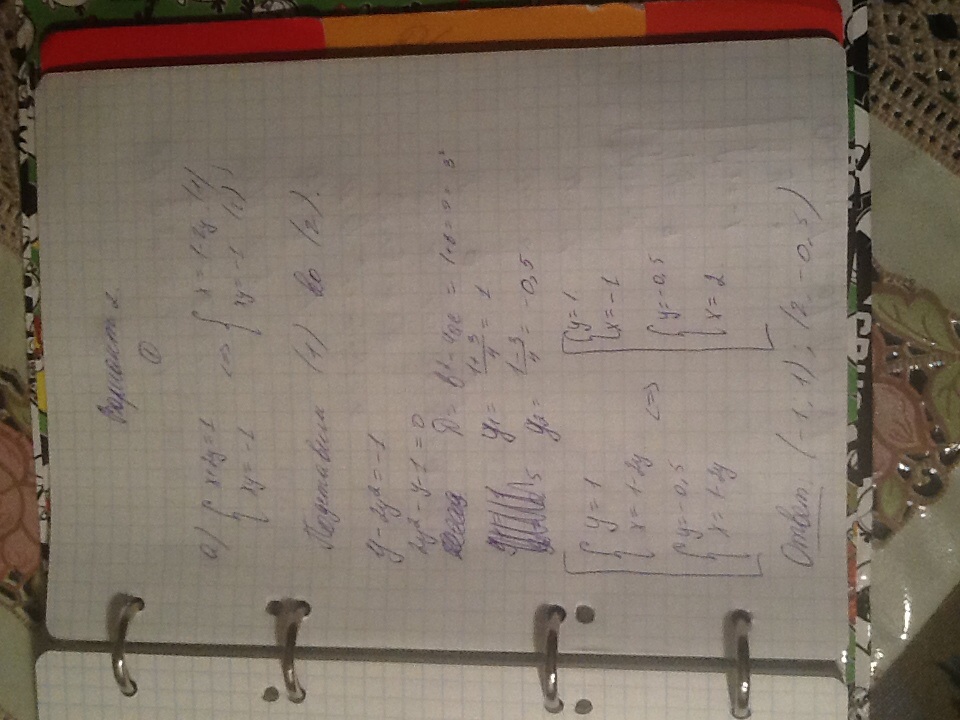 Вариант 2.
①
а) { x+2y=1 <=> { x=1-2y (1)
xy=-1 xy=-1 (2) ;
Подставим (1) во (2).
y-2y²=-1
2y²-y-1=0 D= b²-4ac = 1+8=9=3²
y₁= 1+3/4 = 1
y₂= 1-3/4 = -0,5
[ { y=1 [ { y=1
x=1-2y <=> x=-1
{ y=-0,5 { y=-0,5
x=1-2y x=2
Ответ: (-1, 1) ; (2, -0,5)